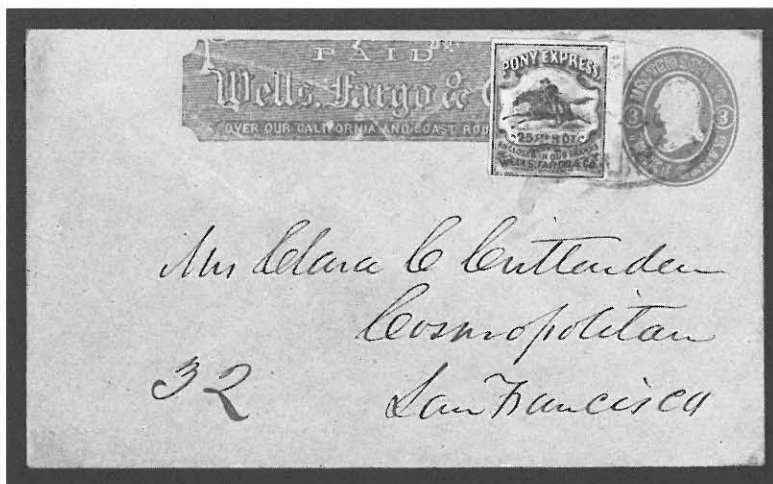 PAID
Wells, Fargo & C
OVER OUR CALIFORNIA AND COAST ROU
PONY EXPRESS
25
OZ
ENCLOSED IN OUR FRANKS
WELLS, FARGO & CO.
UNITED STATES
3
3
Mrs Clara C Crittenden
Cosmopolitan
32
San Francisco